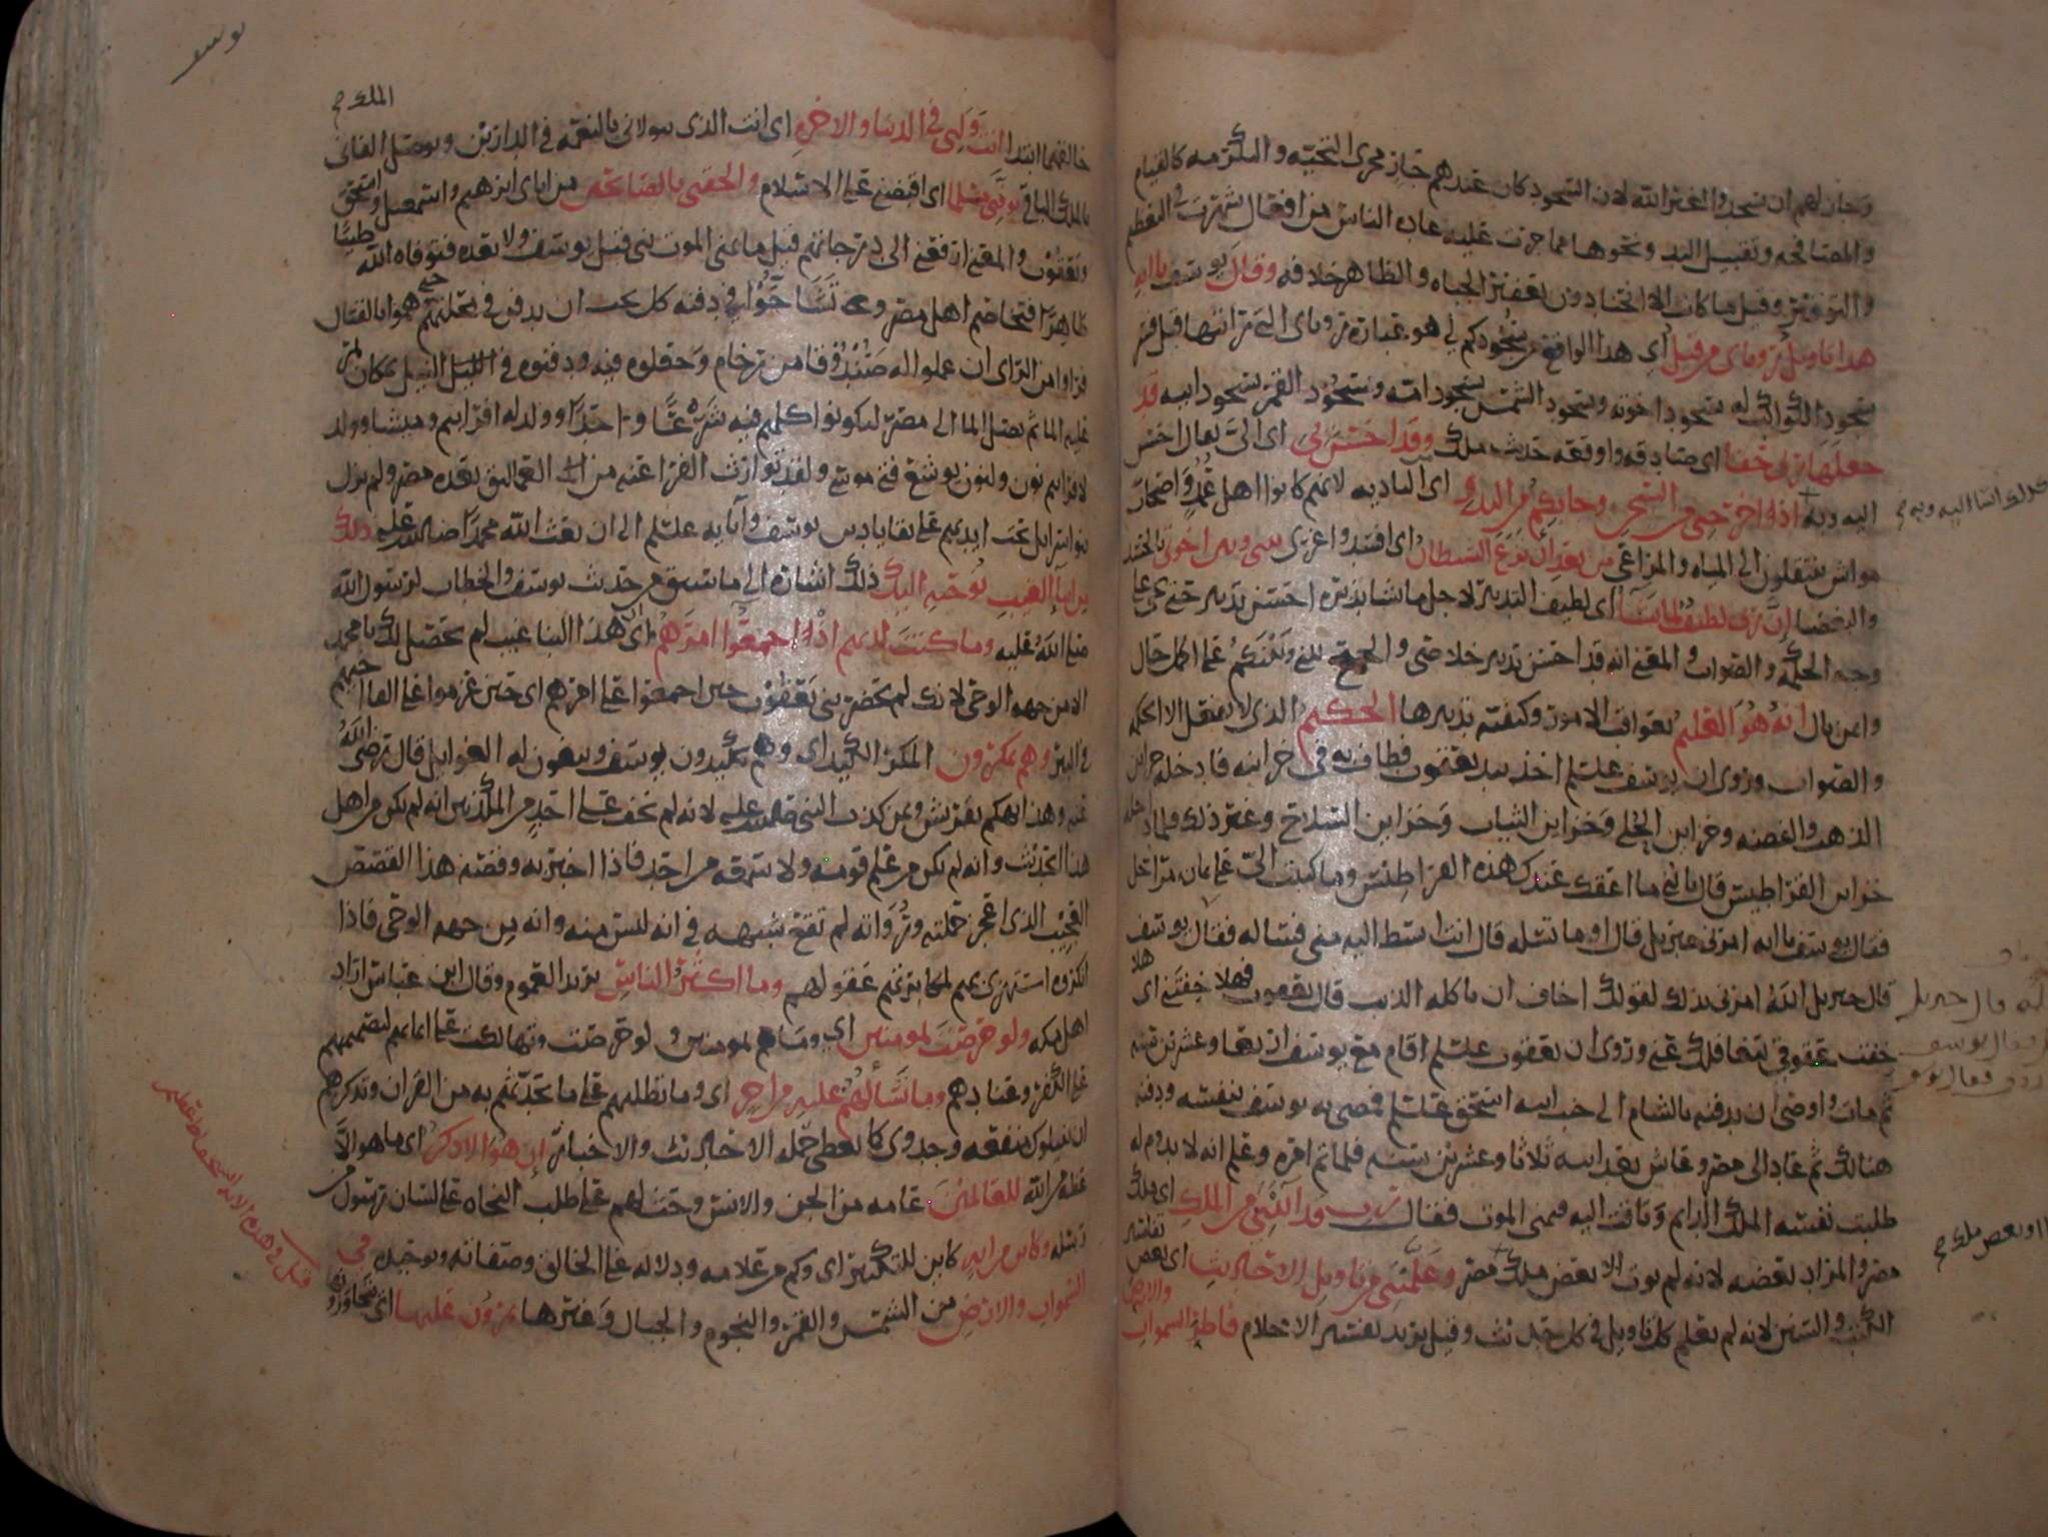 وجاز لهم ان يسجدوا لغير الله لان السجود كان عندهم جاز مجرى التحيه والتكرمه كالقيام
والمصافحه وتقبيل اليد ونحوها مما جرت عليه عاده الناس من افعال شهرت في التعظيم
والتوقير وقيل ما كانت الا انحنا دون تعفير الجباه والظاهر خلافه وقال يوسف يا ابه
هذا تاويل روياي من قبل اي هذا الواقع من سجودكم لي هو عباره روياي التي رايتها قبل فسر
سجود الكواكب له بسجود اخوته وسجود الشمس بسجود امه وسجود القمر بسجود ابيه قد
جعلها ربي حقا اي صادقه واوقعه حديث ملك وقد احسن بي اي الي يقال احسن
اليه وبه اذ اخرجني من السجن وجا بكم من البدو اي الباديه لانهم كانوا اهل عمد واصحاب
مواش ينتقلون الى المياه والمراعي من بعد ان نزغ الشيطان اي افسد واغرى بيني وبين اخوتي بالحسد
والبغضا ان ربي لطيف لما يشا اي لطيف التدبير لاجل ما يشا يدبره احسن تدبير حتى يجي على
وجه الحكمه والصواب والمعنى انه قد احسن تدبير خلاصي والجمع بيني وبينكم على اكمل حال
وانعم بال انه هو العليم بعواقب الامور وكيفيه تدبيرها الحكيم الذي لا يفعل الا الحكمه
والصواب وروى ان يوسف عليتلم اخذ بيد يعقوب فطاف به في خزائنه فادخله خزاين
الذهب والفضه وخزاين الحلي وخزاين الثياب وخزاين السلاح وغير ذلك فلما ادخله
خزاين القراطيس قال يا بني ما اعقك عندك هذه القراطيس وما كتبت الي على ثمان مراحل
فقال يوسف يا ابه امرني جبريل قال اوما تسله قال انت ابسط اليه مني فساله فقال يوسف
قال جبريل الله امرني بذلك لقولك اخاف ان ياكله الذيب قال يعقوب فهلا خفتني اي
خفت عقوقي بتغافلك عني وروى ان يعقوب عليتلم اقام مع يوسف اربعا وعشرين سنه
ثم مات واوصى ان يدفنه بالشام الى جنب ابيه اسحق عليتلم فمضى به يوسف بنفسه ودفنه
هنالك ثم عاد الى مصر وعاش بعد ابيه ثلاثا وعشرين سنه فلما تم امره وعلم انه لا يدوم له
طلبت نفسه الملك الدايم وتاقت اليه فتمنى الموت فقال رب قد اتيتني من الملك اي ملك
مصر والمراد بعضه لانه لم يوت الا بعض ملك مصر وعلمتني من تاويل الاحاديث اي بعض تفاسير
الكتب والسنن لانه لم يعلم كل تاويل في كل حديث وقيل يريد تفسير الاحلام فاطر السموات والارض
كذلك اسا اليه وبه
قال جبريل
او بعض ملك
يوسف
الملك
خالقهما ابتدا انت وليي في الدنيا والاخره اي انت الذي يتولاني بالنعمه في الدارين ويوصل الفاني
بالملك الباقي توفني مسلما اي اقبضني على الاسلام والحقني بالصالحين من اباي ابرهيم واسمعيل واسحق
ويعقوب والمعنى ارفعني الى درجاتهم قيل ما تمنى الموت نبي قبل يوسف ولا بعده فتوفاه الله طيبا
طاهرا فتخاصم اهل مصر وتشاحوا في دفنه كل يحب ان يدفن في محلتهم حتى هموا بالقتال
فراوا من الراي ان عملوا له صندوقا من رخام وجعلوه فيه ودفنوه في النيل بمكان يمر
عليه الما ثم يصل الما الى مصر ليكونوا كلهم فيه شرعا واحدا وولد له افرايم وميشا وولد
لافرايم نون ولنون يوشع فتى موسى ولقد توارثت الفراعنه من العماليق بعده مصر ولم يزل
بنوا اسرايل تحت ايديهم على بقايا دين يوسف وابايه عليتلم الى ان بعث الله محمدا صلى الله عليه ذلك
من انبا الغيب نوحيه اليك ذلك اشاره الى ما سبق من حديث يوسف والخطاب لرسول الله
صلى الله عليه وما كنت لديهم اذ اجمعوا امرهم اي ان هذا النبا غيب لم يحصل لك يا محمد
الا من جهه الوحي لانك لم تحضر بني يعقوب حين اجمعوا امرهم اي حين عزموا على القا اخيهم
في البير وهم يمكرون المكر الكيد اي وهم يكيدون يوسف ويبغون له الغوايل قال رضي الله
عنه وهذا تهكم بقريش وبمن كذب النبي صلى الله عليه لانه لم يخف على احد من المكذبين انه لم يكن من اهل
هذا الحديث وانه لم يكن من علم قومه ولا سمعه من احد فاذا اخبر به وقصه هذا القصص
العجيب الذي اعجز حملته ورواته لم تقع شبهه في انه ليس منه وانه من جهه الوحي فاذا
انكروه استهزى بهم لمكابرتهم عقولهم وما اكثر الناس يريد العموم وقال ابن عباس اراد
اهل مكه ولو حرصت بمومنين اي وما هم بمومنين ولو حرصت وتهالكت على ايمانهم لتصميمهم
على الكفر وعنادهم وما تسالهم عليه من اجر اي وما تطلبهم على ما تحدثهم به من القران وتذكرهم
ان ينيلوك منفعه وجدوى كما يعطى حمله الاحاديث والاخبار ان هو الا ذكر اي ما هو الا
عظه من الله للعالمين عامه من الجن والانس وحث لهم على طلب النجاه على لسان رسول من
رسله وكاين من ايه كاين للتكثير اي وكم من علامه ودلاله على الخالق وصفاته وتوحيده في
السموات والارض من الشمس والقمر والنجوم والجبال وغيرها يمرون عليها اي يتجاوزونها